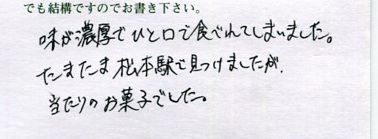 でも結構ですのでお書き下さい。
味が濃厚でひと口で食べれてしまいました。
たまたま松本駅で見つけましたが、
当たりのお菓子でした。